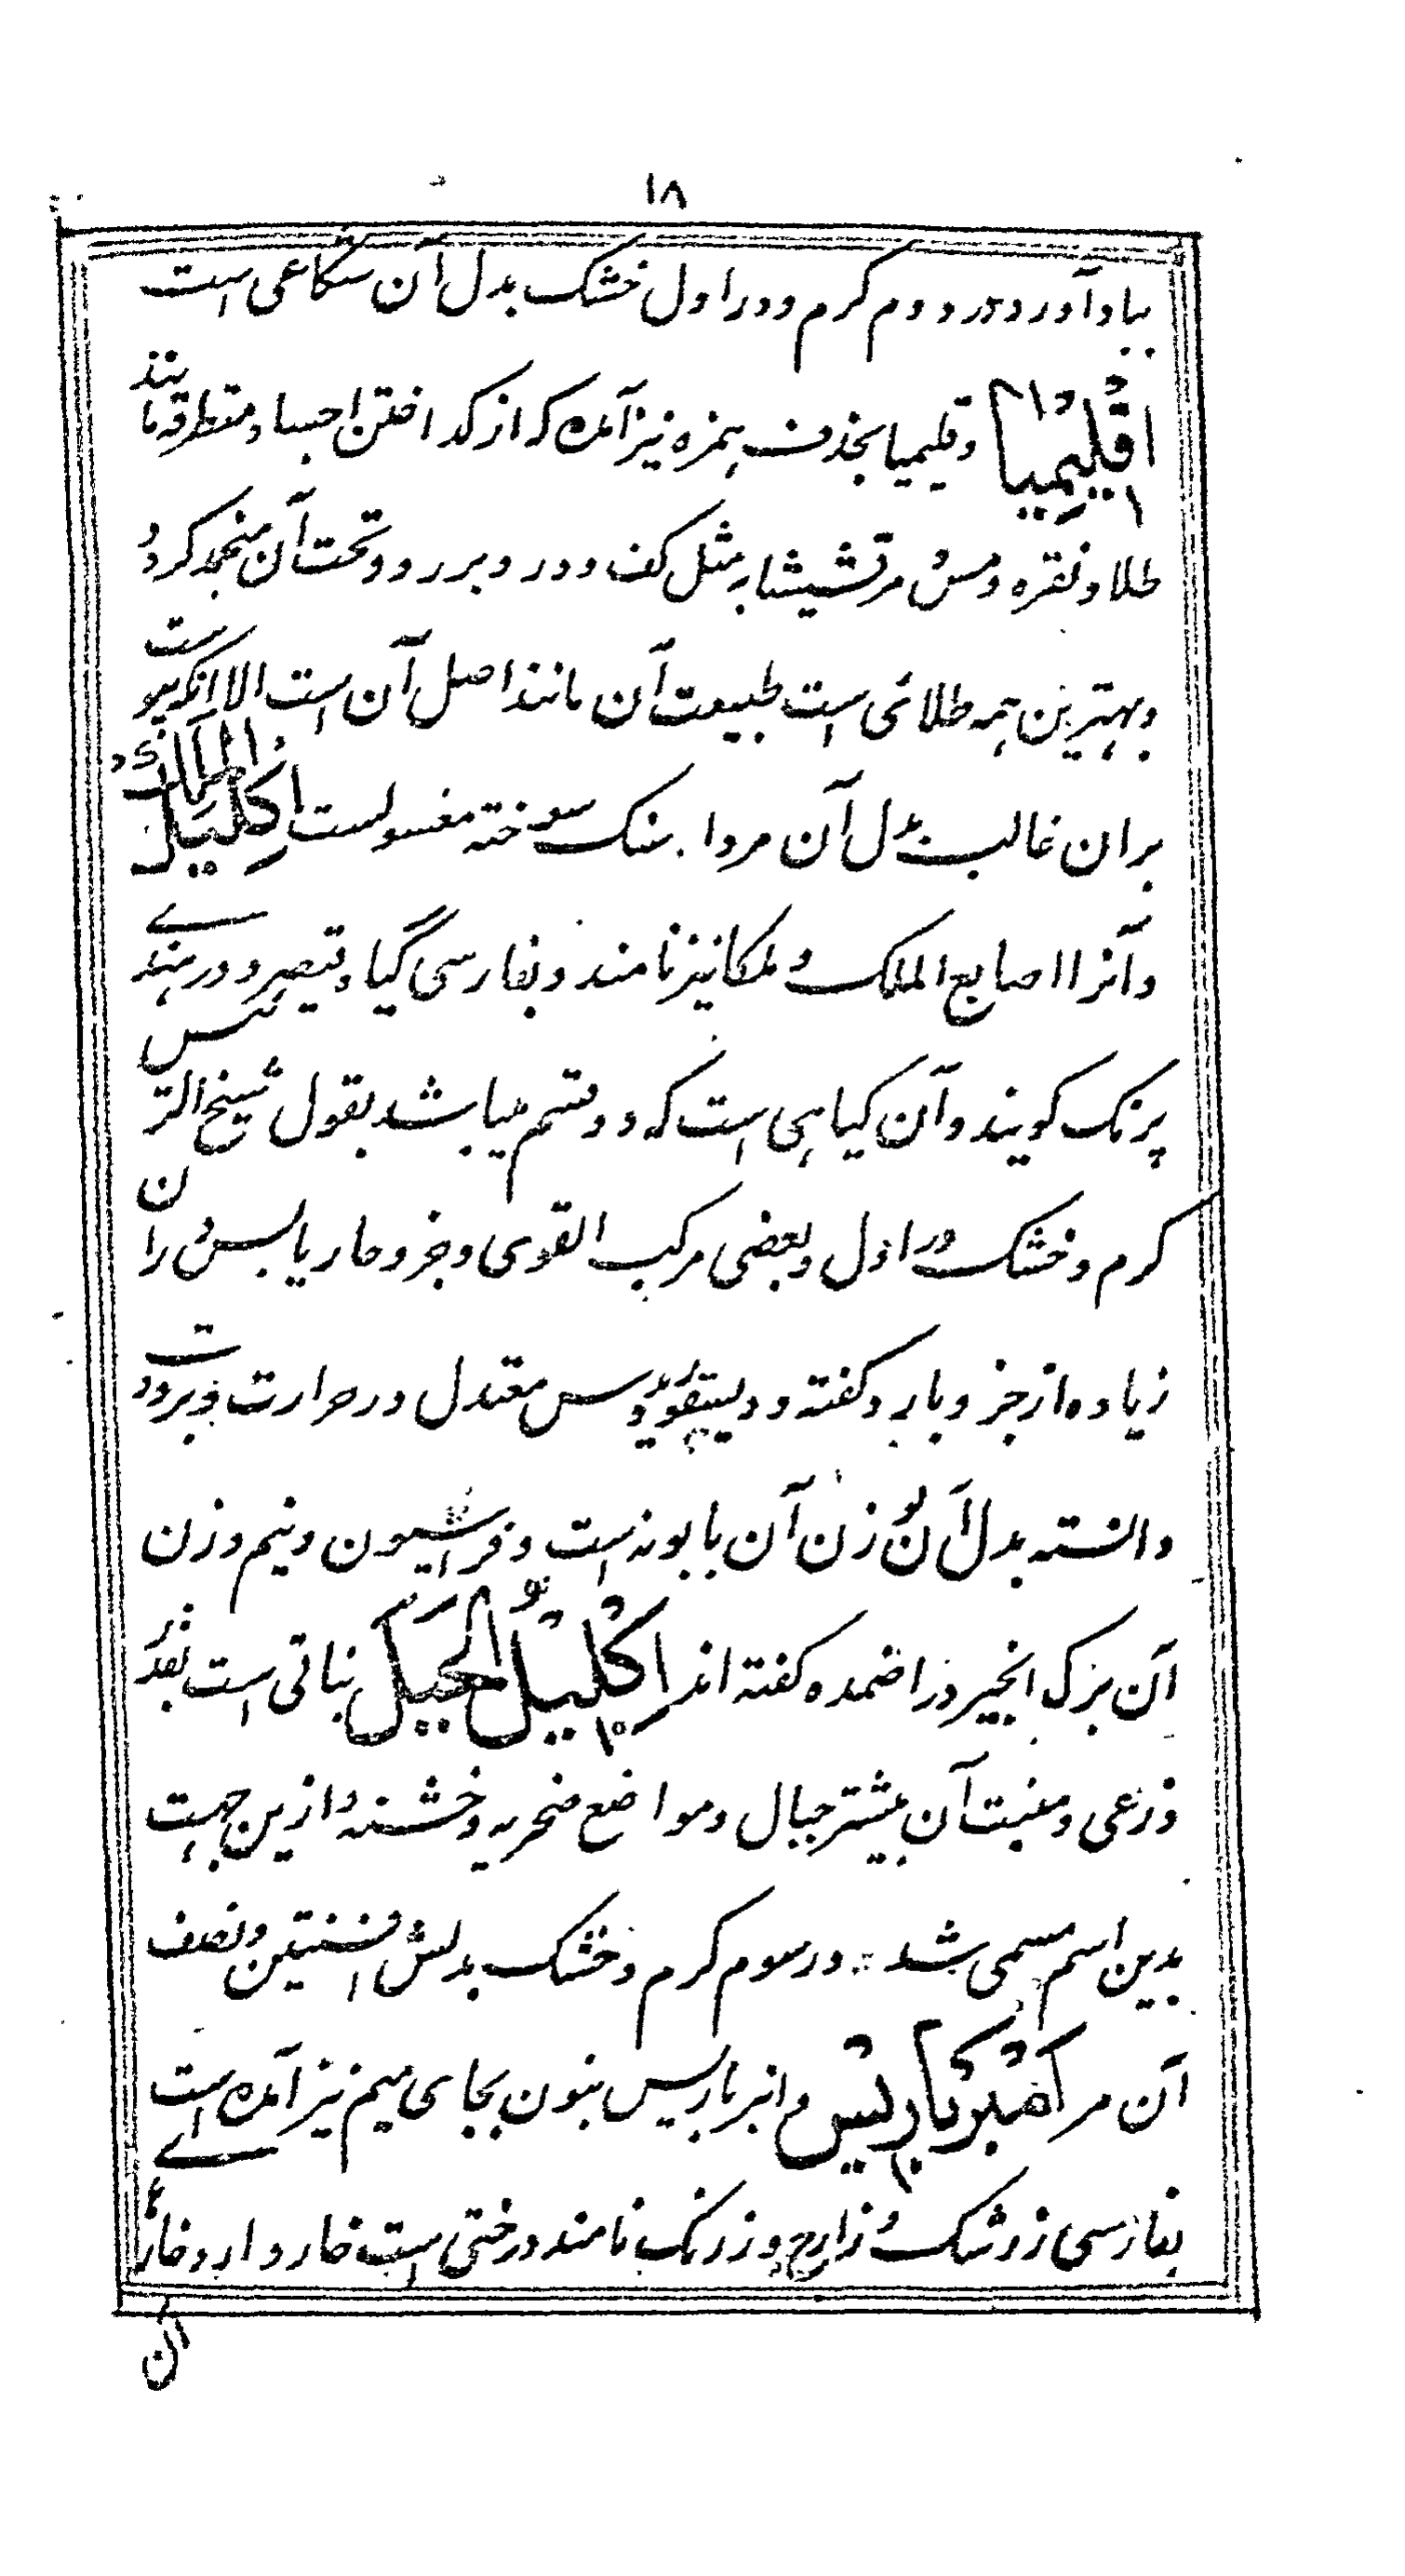 ۱۸
بباد آورد در دوم کرم و در اول خشک بدل آن شکاعی است
اقلیمیا وقلیمیا بحذف همزه نیز آمده که از کداختن اجساد متطرقه مانند
طلا و نقره و مس و مرقشیشا به مثل کف و درد بر رو و تحت آن منجمد کردد
و بهترین همه طلائی است طبیعت آن مانند اصل آن است الا انکه یبوست
بران غالب بدل آن مردار سنک سوخته مغسولست اکلیل الملک
و آنرا اصابع الملک و ملکا نیز نامند و بفارسی گیاه قیصر و در هندے
پرنک کویند و آن کیاهی است که دو قسم میباشد بقول شیخ الرئیس
کرم و خشک در اول و بعضی مرکب القوی و جزو حار یابس را آن
زیاده از جزو بارد کفته و دیسقوریدوس معتدل در حرارت و برودت
دانسته بدل آن بوزن آن بابونه است و فراسیون و نیم وزن
آن برک انجیر در اضمده کفته اند اکلیل الجبل نباتی است بقدر
ذرعی و منبت آن بیشتر جبال و مواضع صخریه و خشنه و ازین جهت
بدین اسم مسمی شد در سوم کرم و خشک بدلش افسنتین و نصف
آن مر امبرباریس و انبرباریس بنون بجای میم نیز آمده است
بفارسی زرشک و زارج و زرنک نامند درختی است خاردار و خارهاے
آن